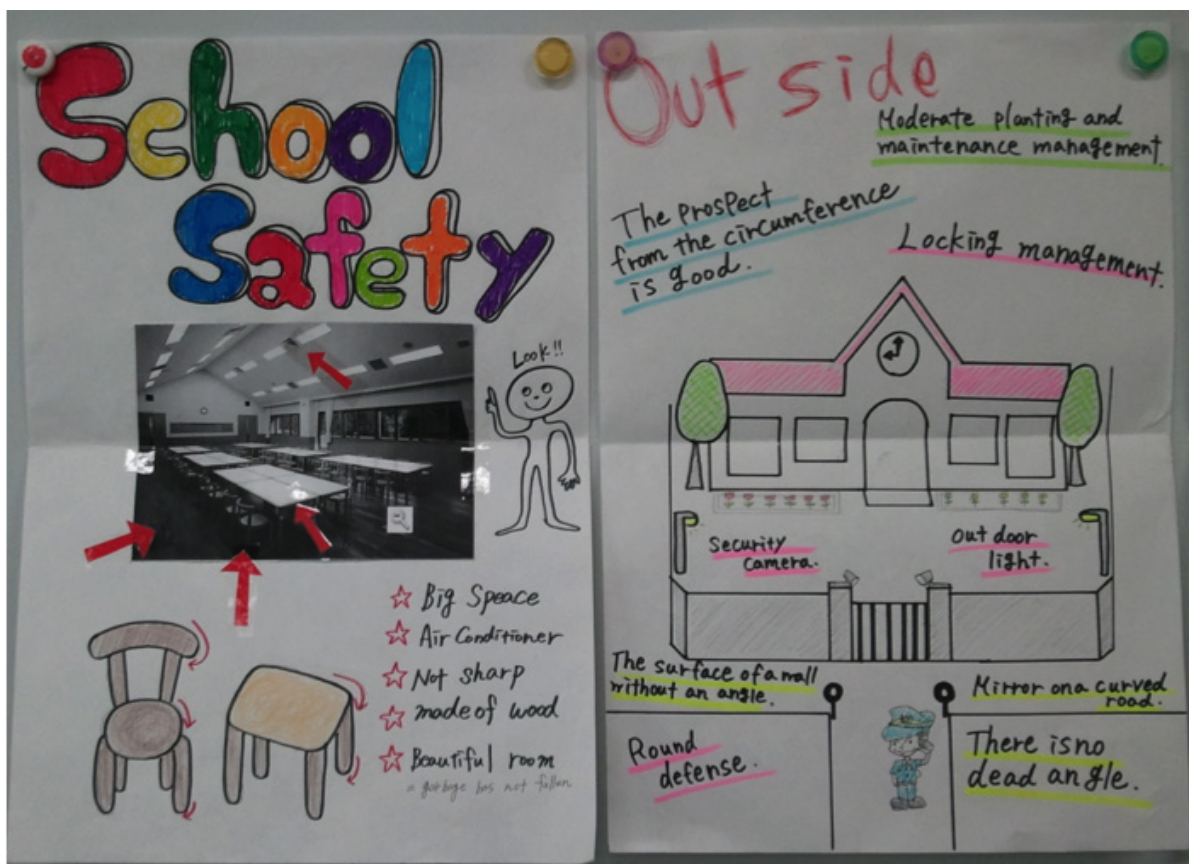 School
Safety
Look!!
Big Speace
Air Conditioner
Not sharp
made of wood
Beautiful room
= garbage has not fallen
Out side
Moderate planting and
maintenance management.
The prospect
from the circumference
is good.
Locking management.
Security
camera.
Out door
light.
The surface of a mall
without an angle.
Mirror on a curved
road.
Round
defense.
There is no
dead angle.